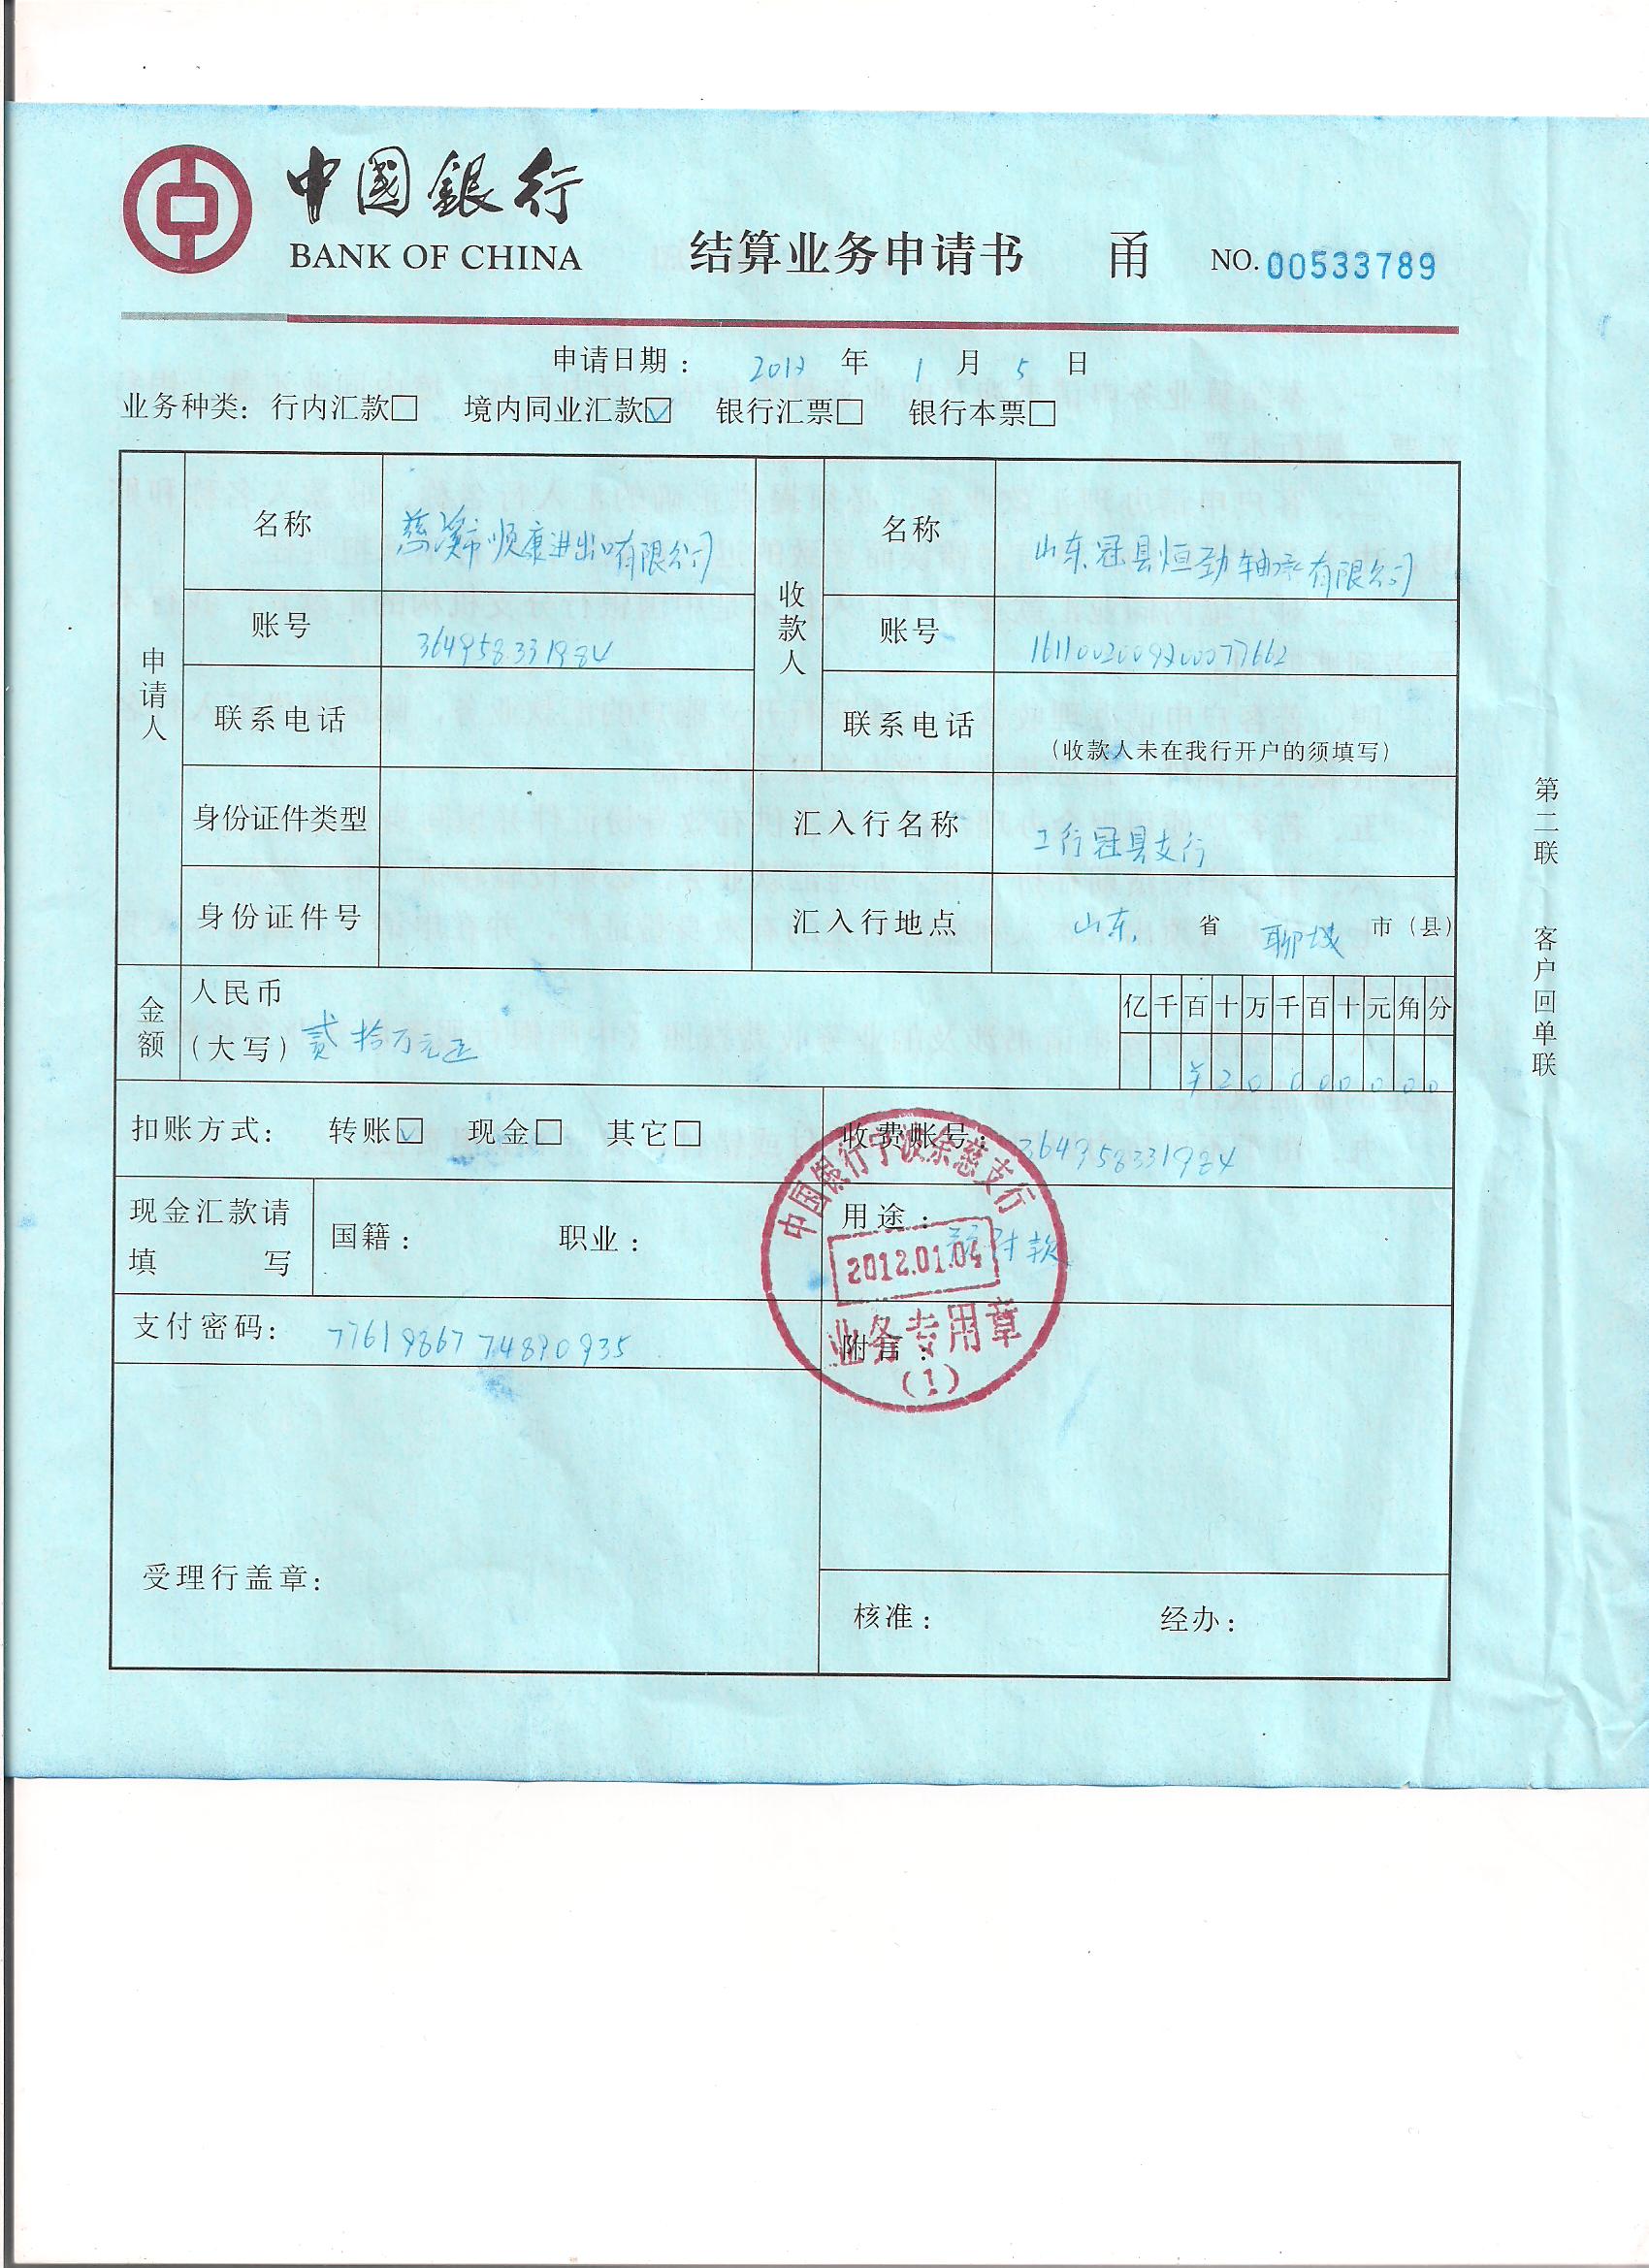 中國銀行
BANK OF CHINA
结算业务申请书 甬 NO.00533789
申请日期： 2012 年 1 月 5 日
业务种类：行内汇款□ 境内同业汇款☑ 银行汇票□ 银行本票□
申请人
名称 慈溪市顺康进出口有限公司
账号 364958331984
联系电话
身份证件类型
身份证件号
收款人
名称 山东冠县恒劲轴承有限公司
账号 1611002009200077662
联系电话 （收款人未在我行开户的须填写）
汇入行名称 工行冠县支行
汇入行地点 山东 省 聊城 市（县）
金额 人民币
（大写）贰拾万元正
亿千百十万千百十元角分
¥20000000
扣账方式： 转账☑ 现金□ 其它□
收费账号：364958331984
现金汇款请
填 写
国籍： 职业：
用途： 付款
支付密码： 7761986774890935
附言：
中国银行宁波余慈支行
2012.01.04
业务专用章
（1）
受理行盖章：
核准： 经办：
第二联 客户回单联